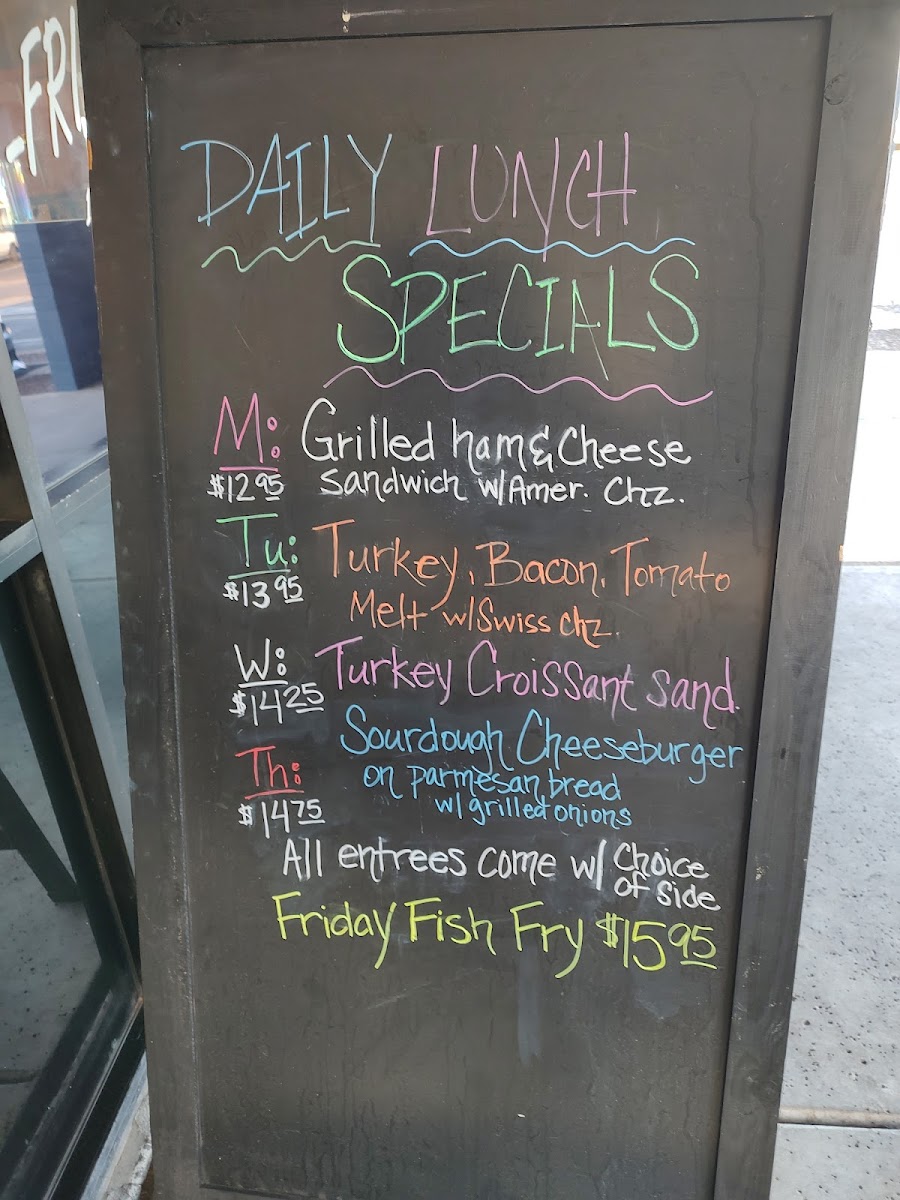 -FRI
DAILY LUNCH
SPECIALS
M: Grilled ham & Cheese
$12.95 Sandwich w/Amer. Chz.
Tu: Turkey, Bacon, Tomato
$13.95 Melt w/Swiss chz.
W: Turkey Croissant Sand.
$14.25
Th: Sourdough Cheeseburger
on parmesan bread
$14.75 w/ grilled onions
All entrees come w/ Choice
of Side
Friday Fish Fry $15.95